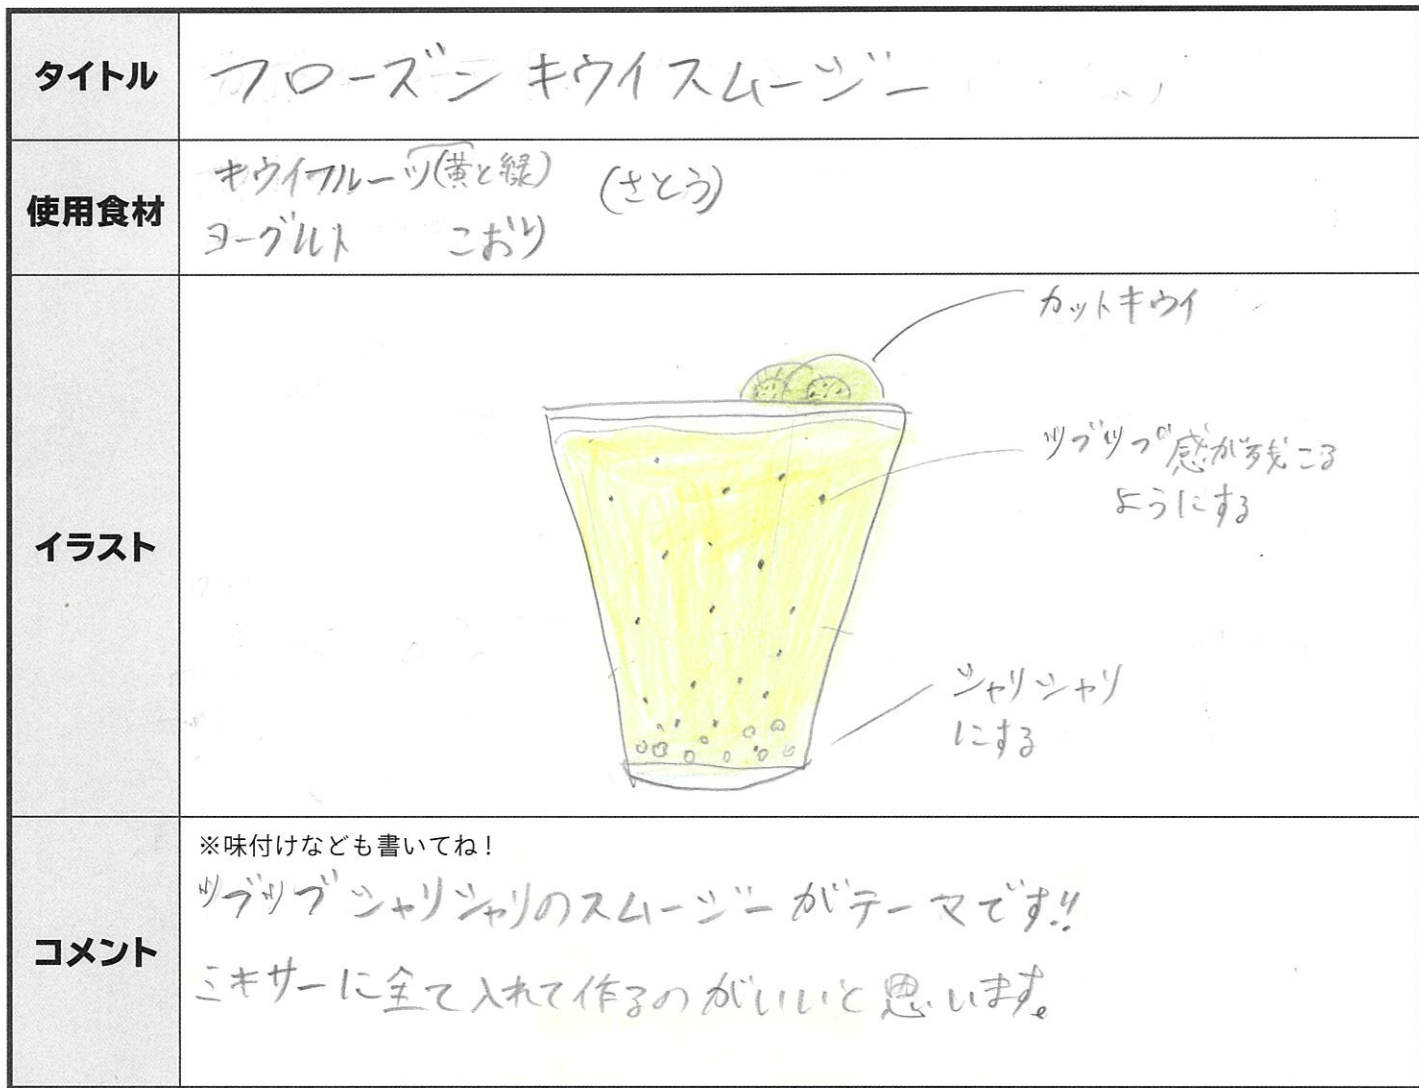 タイトル
フローズン キウイスムージー
使用食材
キウイフルーツ(黄と緑) (さとう)
ヨーグルト こおり
イラスト
カットキウイ
ツブツブ感が残こる
ようにする
シャリシャリ
にする
コメント
※味付けなども書いてね!
ツブツブシャリシャリのスムージーがテーマです!!
ミキサーに全て入れて作るのがいいと思います。